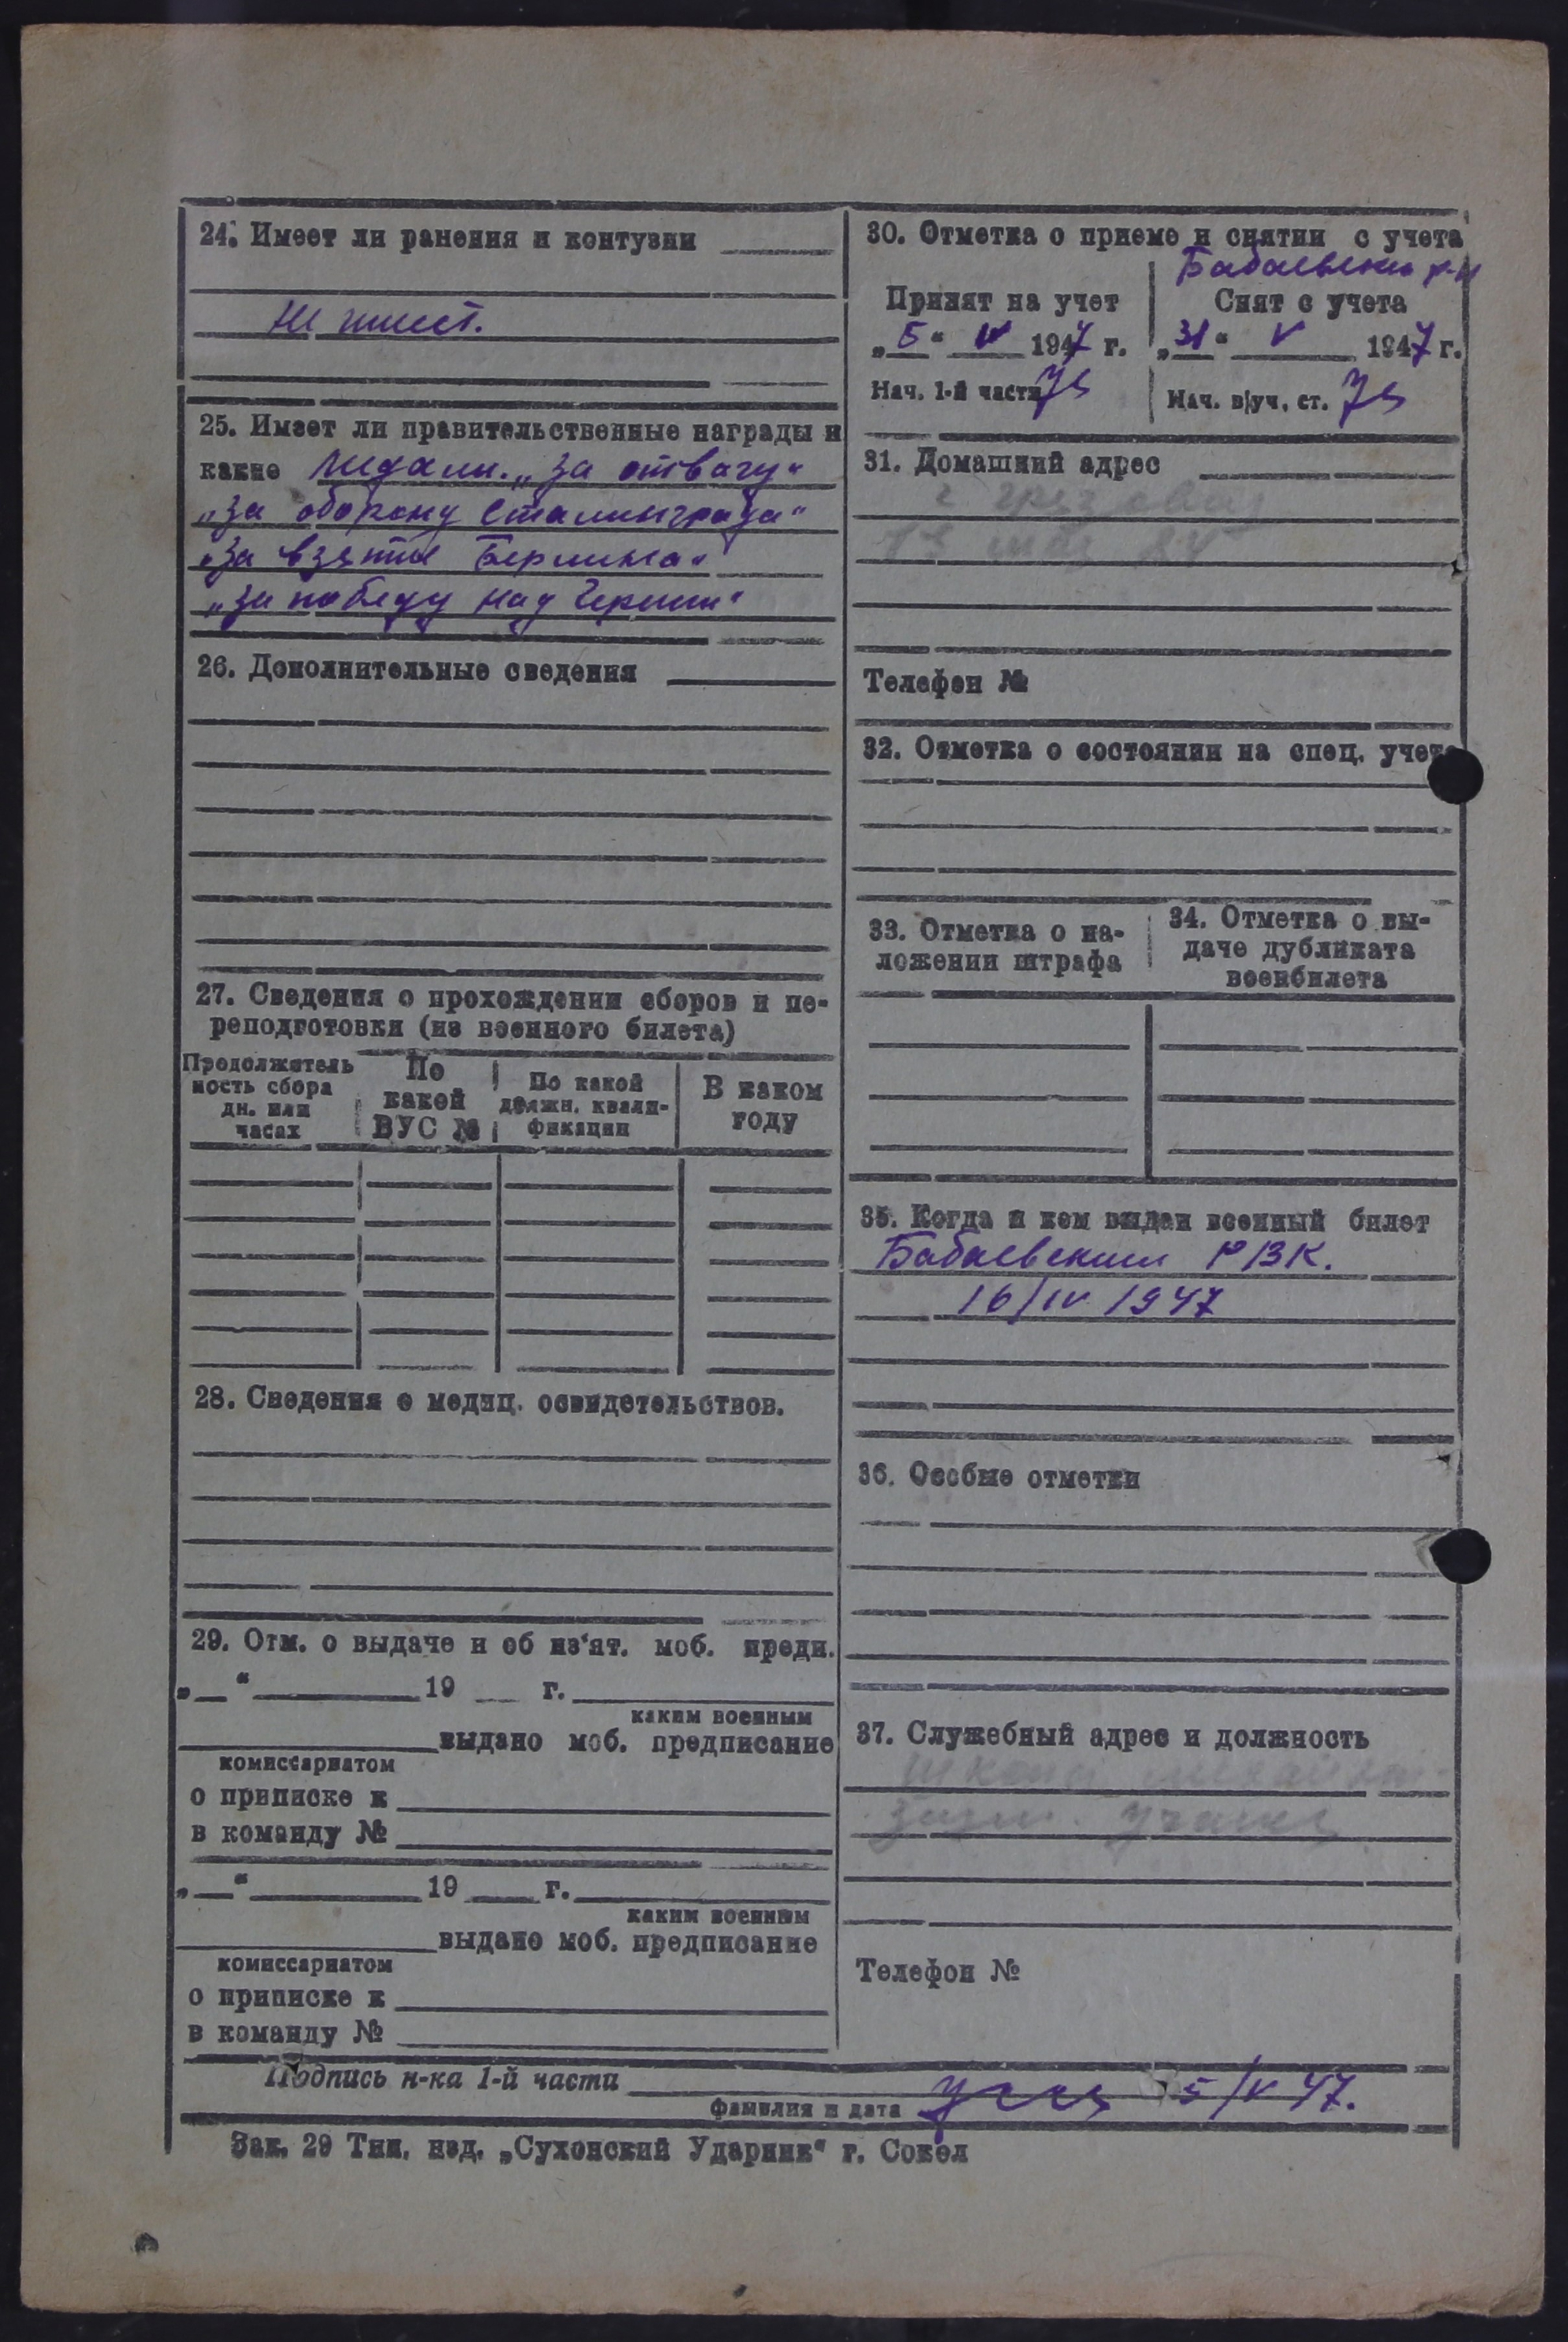 24. Имеет ли ранения и контузии
Не имеет.
25. Имеет ли правительственные награды и
какие Медали. „За отвагу“
„За оборону Сталинграда“
„За взятие Берлина“
„За победу над Герман“
26. Дополнительные сведения
27. Сведения о прохождении сборов и пе-
реподготовки (из военного билета)
Продолжитель
ность сбора
дн. или
часах
По
какой
ВУС №
По какой
должн. квали-
фикации
В каком
году
28. Сведения о медиц. освидетельствов.
29. Отм. о выдаче и об из‘ят. моб. предп.
„ “ 19 г.
каким военным
выдано моб. предписание
комиссариатом
о приписке к
в команду №
„ “ 19 г.
каким военным
выдано моб. предписание
комиссариатом
о приписке к
в команду №
30. Отметка о приеме и снятии с учета
Бабаевский р-н
Принят на учет
„5“ 1947 г.
Нач. 1-й части
Снят с учета
„31“ V 1947 г.
Нач. в/уч. ст.
31. Домашний адрес
Телефон №
32. Отметка о состоянии на спец. учете
33. Отметка о на-
ложении штрафа
34. Отметка о вы-
даче дубликата
военбилета
35. Когда и кем выдан военный билет
Бабаевским РВК.
16/IV 1947
36. Особые отметки
37. Служебный адрес и должность
Телефон №
Подпись н-ка 1-й части
фамилия и дата
5/V 47.
Зак. 29 Тип. изд. „Сухонский Ударник“ г. Сокол